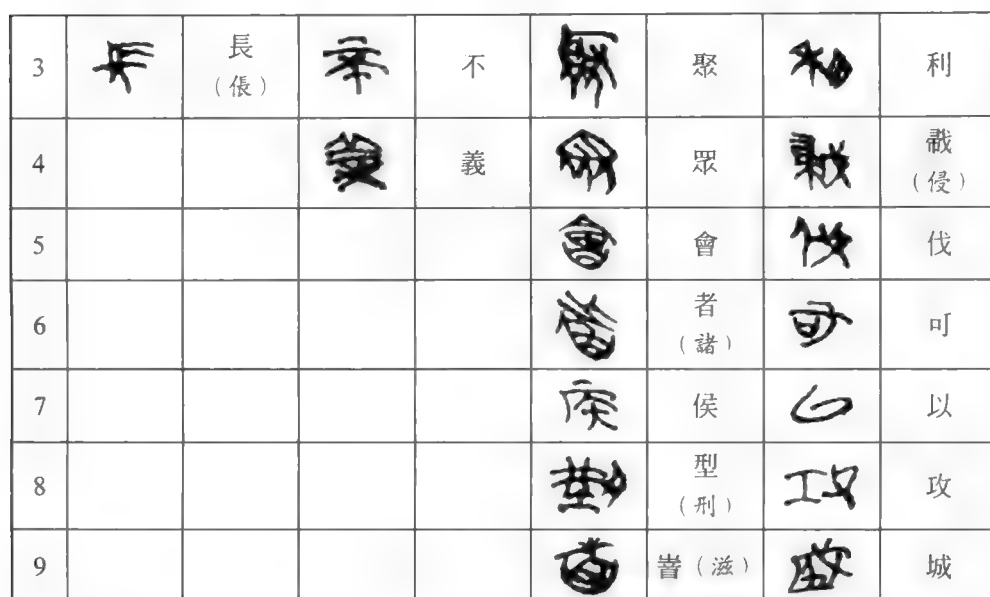 3 長（倀） 不 聚 利
4 義 眾 戬（侵）
5 會 伐
6 者（諸） 可
7 侯 以
8 型（刑） 攻
9 旹（滋） 城